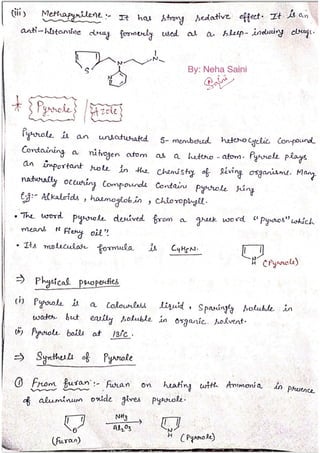 (iii) Methapyrilene :- It has strong sedative effect. It is an
anti-histamine drug formerly used as a sleep-inducing drugs.
N
N
S
N
By: Neha Saini
* Pyrrole / Azole
Pyrrole is an unsaturated 5-membered heterocyclic compound
Containing a nitogen atom as a hetro-atom. Pyrrole plays
an important role in the chemistry of living organisms. Many
naturally occuring compounds contain pyrrole ring
Eg:- Alkaloids, haemoglobin, chlorophyll.
• The word pyrrole derived from a greek word "pyrros" which
means "Fiery oil".
• Its molecular formula is C4H5N.
N
H (Pyrrole)
⇒ Physical properties
(i) Pyrrole is a colourless liquid, Sparingly soluble in
water but easily soluble in organic solvent.
(ii) Pyrrole boils at 131°C.
⇒ Synthesis of Pyrrole
① From furan :- Furan on heating with Ammonia in presence
of aluminum oxide gives pyrrole.
O
(furan)
NH3
Al2O3
N
H
(Pyrrole)